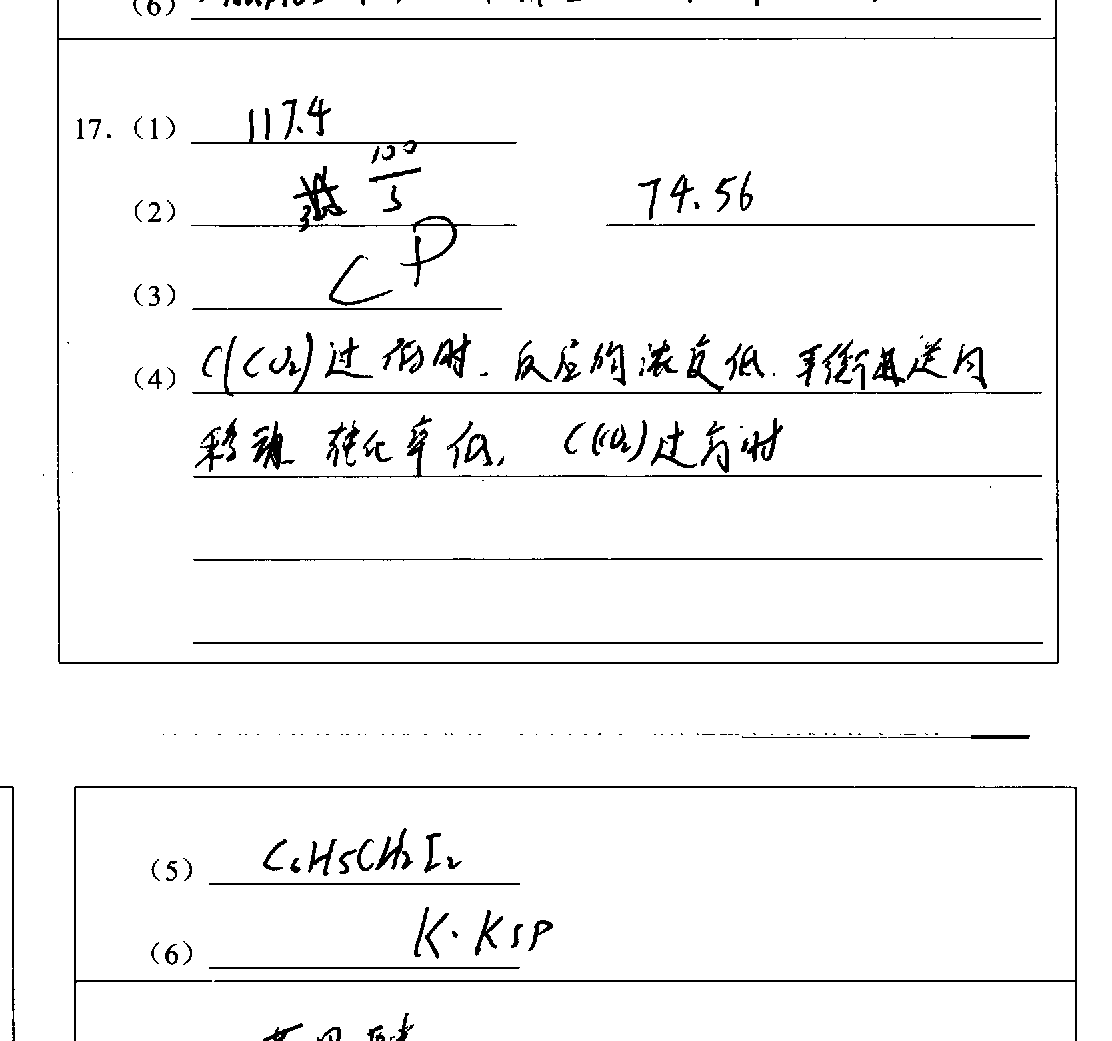 (6)
17. (1) 117.4
(2) 100/5 74.56
(3) CD
(4) C(CO₂)过低时. 反应的浓度低. 平衡逆向
移动 转化率低, C(CO₂)过高时
(5) C₆H5CH₂I₂
(6) K·KSP